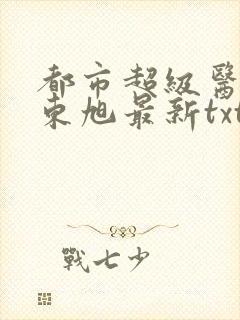 都市超級醫
東旭最新txt
戰七少